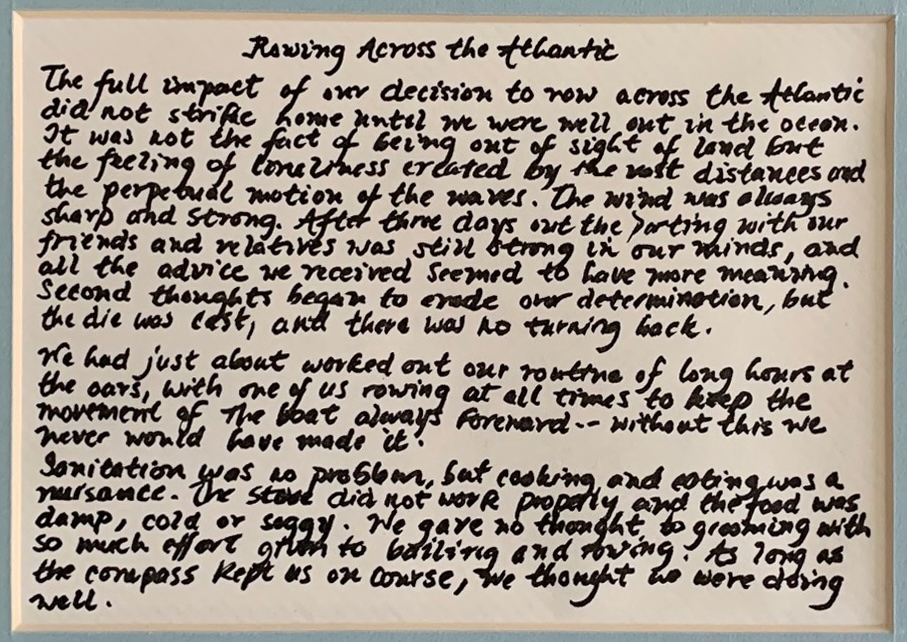 Rowing Across the Atlantic
The full impact of our decision to row across the Atlantic
did not strike home until we were well out in the ocean.
It was not the fact of being out of sight of land but
the feeling of loneliness created by the vast distances and
the perpetual motion of the waves. The wind was always
sharp and strong. After three days out the parting with our
friends and relatives was still strong in our minds, and
all the advice we received seemed to have more meaning.
Second thoughts began to erode our determination, but
the die was cast, and there was no turning back.
We had just about worked out our routine of long hours at
the oars, with one of us rowing at all times to keep the
movement of the boat always foreward -- without this we
never would have made it.
Sanitation was no problem, but cooking and eating was a
nuisance. The stove did not work properly and the food was
damp, cold or soggy. We gave no thought to grooming with
so much effort given to bailing and rowing. As long as
the compass kept us on course, we thought we were doing
well.